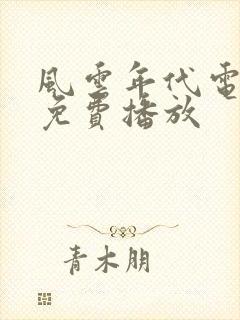 風雲年代電
免費播放
青木朋